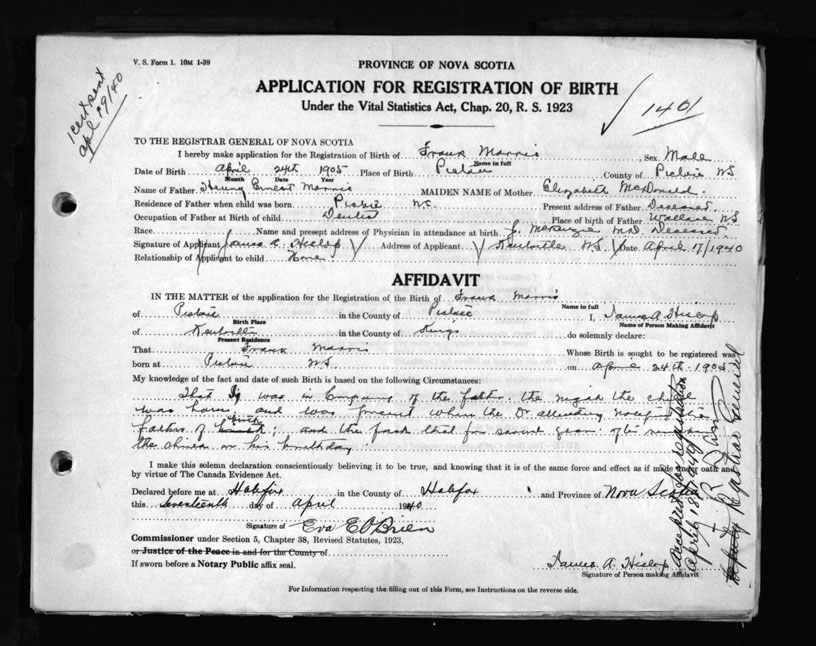 V. S. Form 1. 10M 1-39
PROVINCE OF NOVA SCOTIA
APPLICATION FOR REGISTRATION OF BIRTH
Under the Vital Statistics Act, Chap. 20, R. S. 1923
1401
apl 19/40
TO THE REGISTRAR GENERAL OF NOVA SCOTIA
I hereby make application for the Registration of Birth of Frank Morris Sex Male
Name in full
Date of Birth April 24th 1905 Place of Birth Pictou County of Pictou NS
Month Date Year
Name of Father Henry Ernest Morris MAIDEN NAME of Mother Elizabeth McDonald
Residence of Father when child was born Pictou N.S. Present address of Father Deceased
Occupation of Father at Birth of child Dentist Place of birth of Father Wallace NS
Race Name and present address of Physician in attendance at birth J. McKenzie MD Deceased
Signature of Applicant James A. Hislop Address of Applicant Kentville NS. Date April 17/1940
Relationship of Applicant to child None
AFFIDAVIT
IN THE MATTER of the application for the Registration of the Birth of Frank Morris
Name in full
of Pictou in the County of Pictou I, James A Hislop
Birth Place Name of Person Making Affidavit
of Kentville in the County of Kings do solemnly declare:
Present Residence
That Frank Morris Whose Birth is sought to be registered was
born at Pictou NS. on April 24th. 1905
My knowledge of the fact and date of such Birth is based on the following Circumstances:
That I was in Company of the father the night the child
was born and was present when the Dr. attending notified the
father of birth; and the fact that for several years after
the child on his birthday
I make this solemn declaration conscientiously believing it to be true, and knowing that it is of the same force and effect as if made under oath and
by virtue of The Canada Evidence Act.
Declared before me at Halifax in the County of Halifax and Province of Nova Scotia
this seventeenth day of April 1940
Signature of Eva E O'Brien
Commissioner under Section 5, Chapter 38, Revised Statutes, 1923,
or Justice of the Peace in and for the County of
If sworn before a Notary Public affix seal.
James A. Hislop
Signature of Person making Affidavit
For Information respecting the filling out of this Form, see Instructions on the reverse side.
Accepted for registration
April 18th 1940
Deputy Registrar General